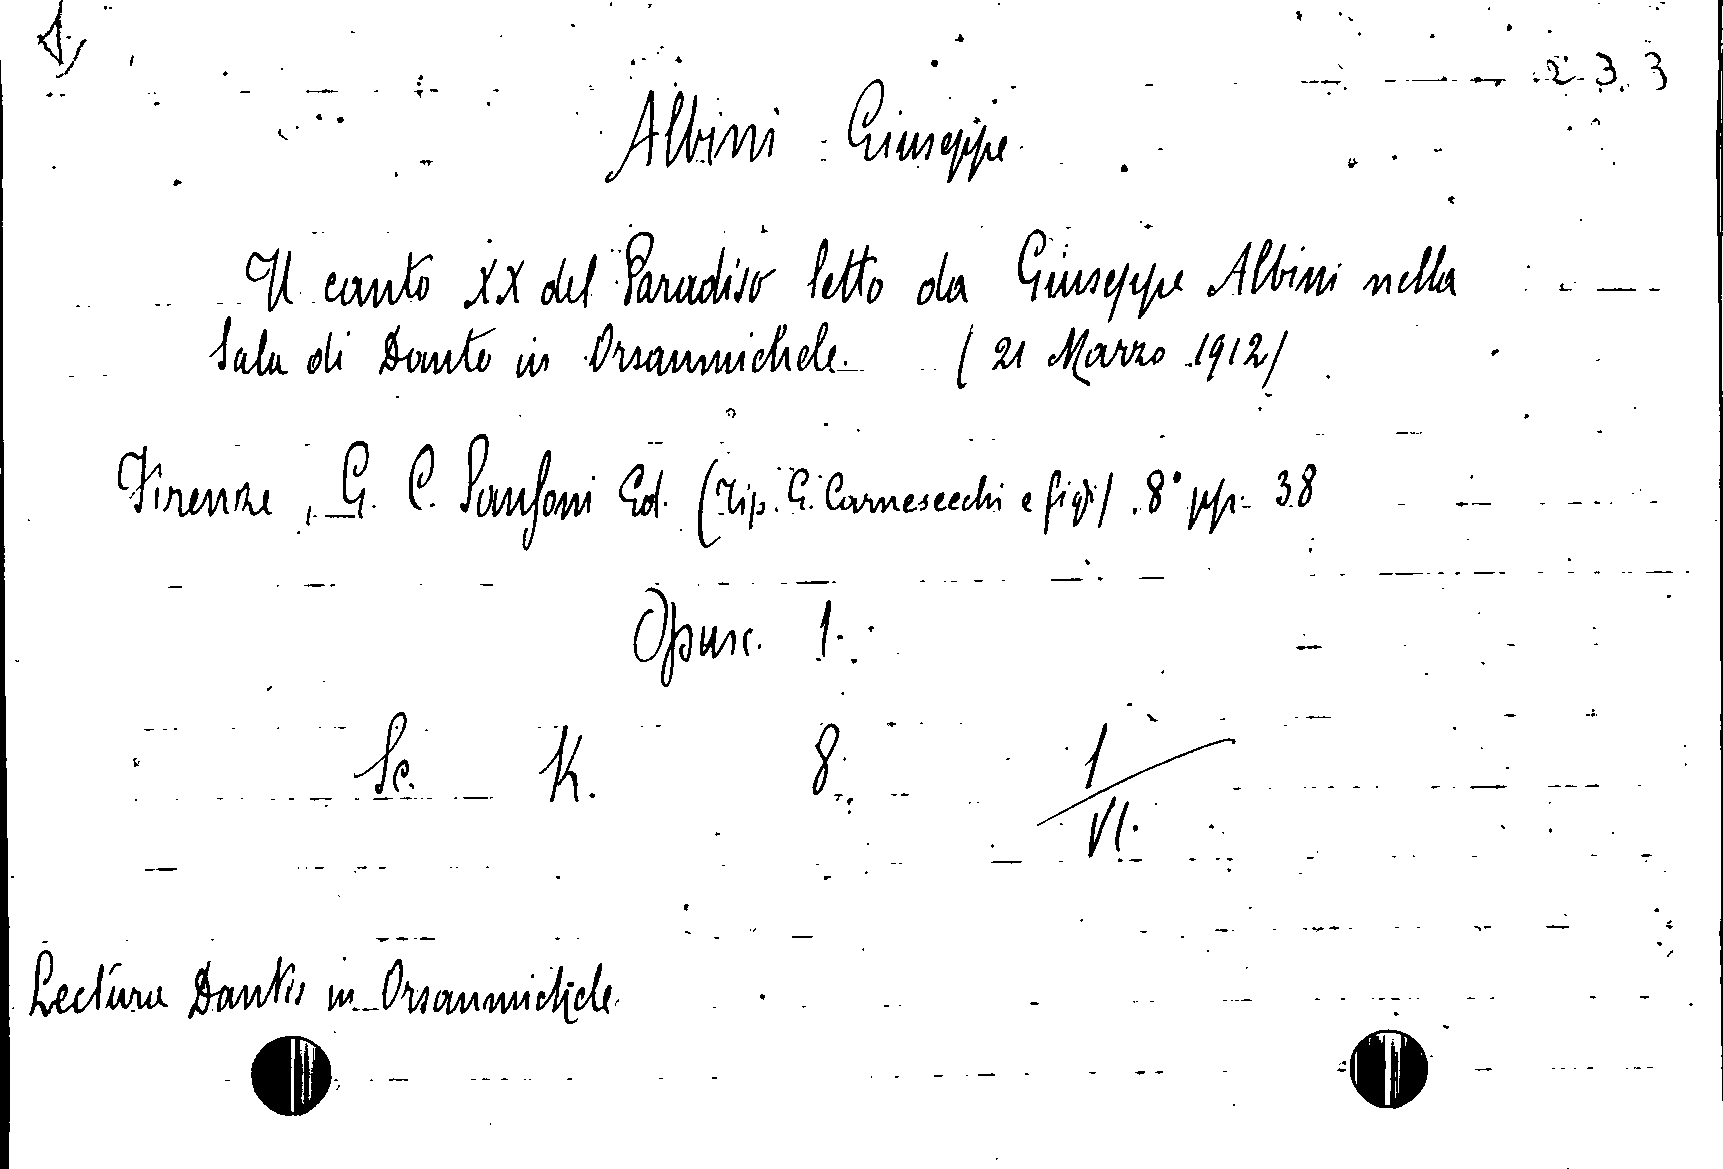 233
Albini Giuseppe
Il canto XX del Paradiso letto da Giuseppe Albini nella
Sala di Dante in Orsanmichele. (21 Marzo 1912)
Firenze, G. C. Sansoni Ed. (Tip. G. Carnesecchi e figli). 8° pp. 38
Opusc. 1.
Sc. K. 8. 1/VI.
Lectura Dantis in Orsanmichele